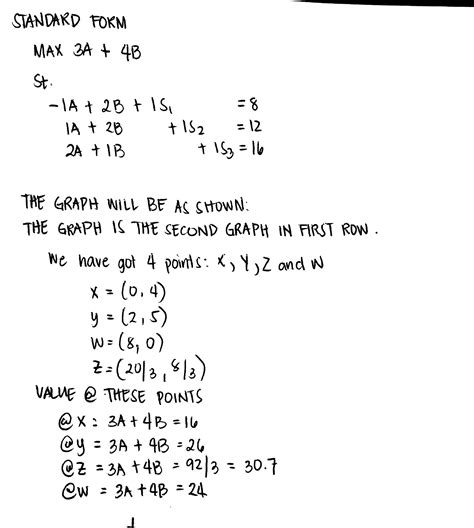 STANDARD FORM
MAX 3A + 4B
St.
-1A + 2B + 1S₁ = 8
1A + 2B + 1S₂ = 12
2A + 1B + 1S₃ = 16
THE GRAPH WILL BE AS SHOWN:
THE GRAPH IS THE SECOND GRAPH IN FIRST ROW.
We have got 4 points: X, Y, Z and W
X = (0, 4)
y = (2, 5)
W = (8, 0)
Z = (20/3, 8/3)
VALUE @ THESE POINTS
@ X : 3A + 4B = 16
@ y = 3A + 4B = 26
@ Z = 3A + 4B = 92/3 = 30.7
@ W = 3A + 4B = 24